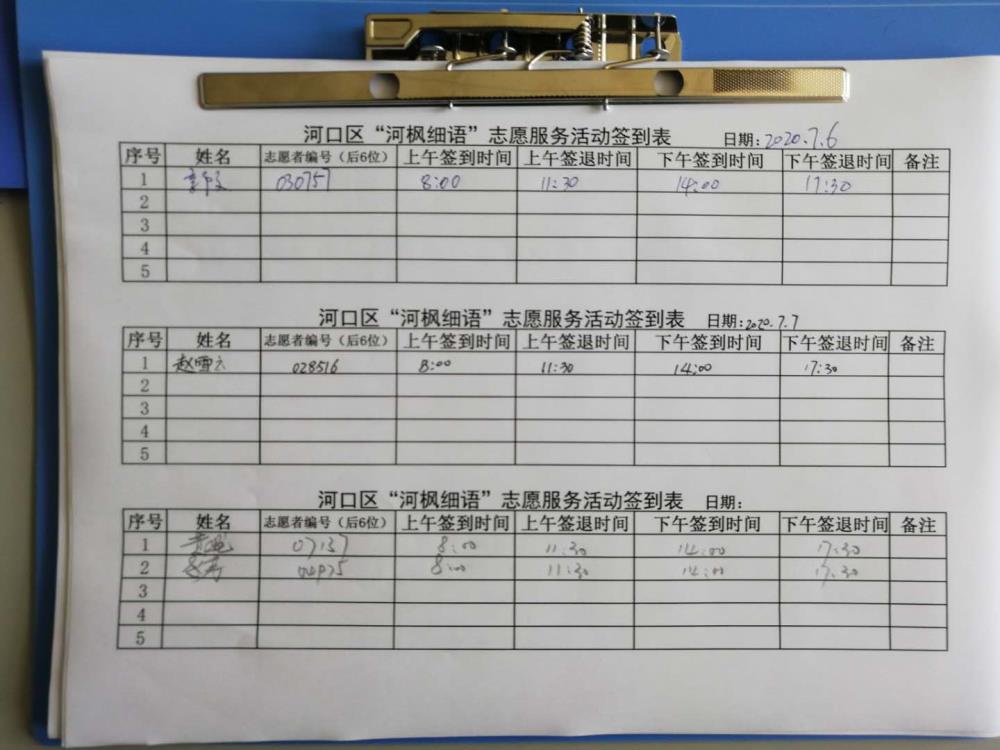 河口区“河枫细语”志愿服务活动签到表 日期:2020.7.6
序号 姓名 志愿者编号（后6位） 上午签到时间 上午签退时间 下午签到时间 下午签退时间 备注
1 030757 8:00 11:30 14:00 17:30
2
3
4
5
河口区“河枫细语”志愿服务活动签到表 日期:2020.7.7
序号 姓名 志愿者编号（后6位） 上午签到时间 上午签退时间 下午签到时间 下午签退时间 备注
1 赵雪云 028516 8:00 11:30 14:00 17:30
2
3
4
5
河口区“河枫细语”志愿服务活动签到表 日期:
序号 姓名 志愿者编号（后6位） 上午签到时间 上午签退时间 下午签到时间 下午签退时间 备注
1 8:00 11:30 14:00 17:30
2 8:00 11:30 14:00 17:30
3
4
5